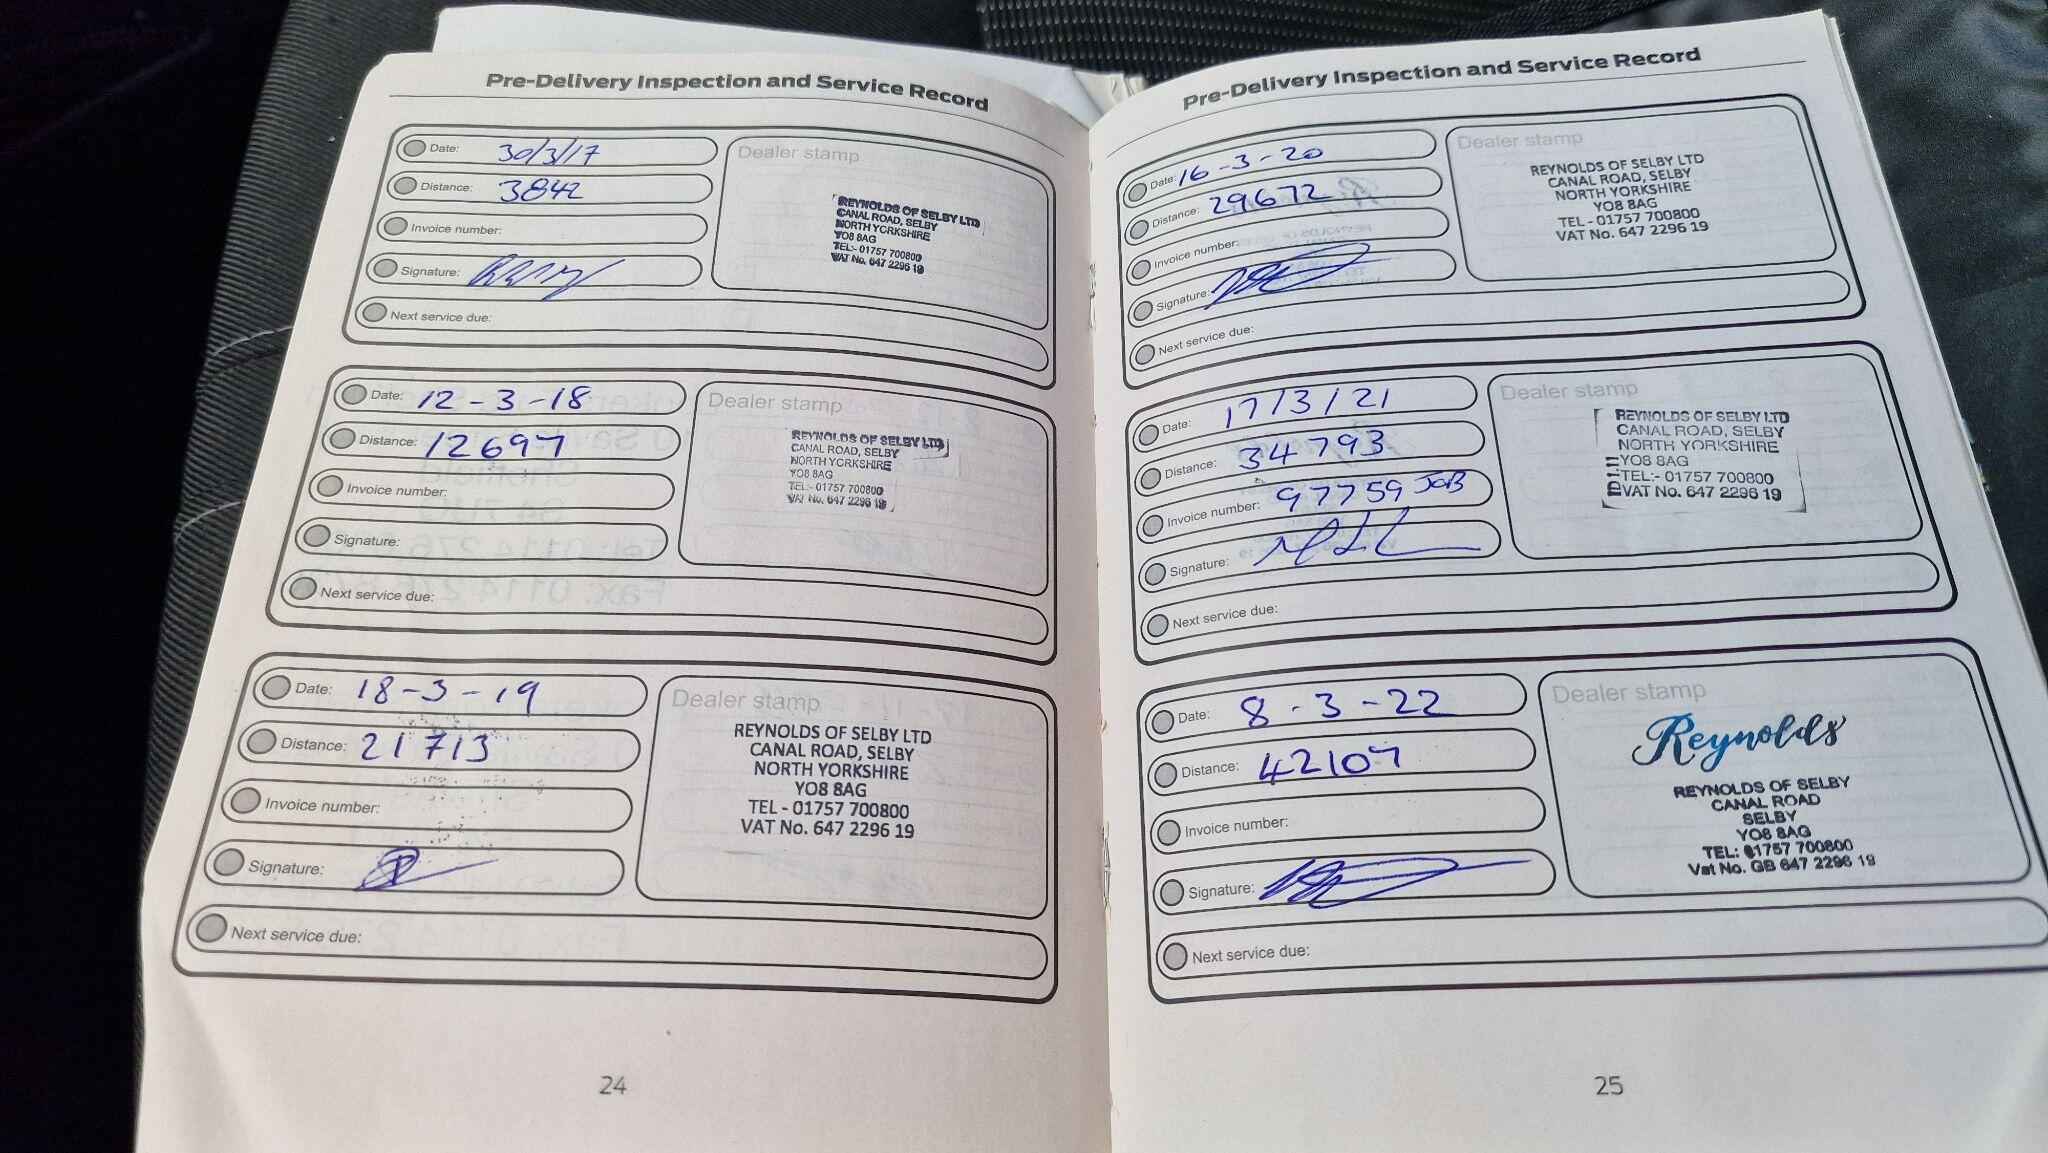 Pre-Delivery Inspection and Service Record
Date: 30/3/17
Distance: 3842
Invoice number:
Signature:
Next service due:
Dealer stamp
REYNOLDS OF SELBY LTD
CANAL ROAD, SELBY
NORTH YORKSHIRE
YO8 8AG
TEL:- 01757 700800
VAT No. 647 2296 19
Date: 12-3-18
Distance: 12697
Invoice number:
Signature:
Next service due:
Dealer stamp
REYNOLDS OF SELBY LTD
CANAL ROAD, SELBY
NORTH YORKSHIRE
YO8 8AG
TEL:- 01757 700800
VAT No. 647 2296 19
Date: 18-3-19
Distance: 21713
Invoice number:
Signature:
Next service due:
Dealer stamp
REYNOLDS OF SELBY LTD
CANAL ROAD, SELBY
NORTH YORKSHIRE
YO8 8AG
TEL - 01757 700800
VAT No. 647 2296 19
24
Pre-Delivery Inspection and Service Record
Date: 16-3-20
Distance: 29672
Invoice number:
Signature:
Next service due:
Dealer stamp
REYNOLDS OF SELBY LTD
CANAL ROAD, SELBY
NORTH YORKSHIRE
YO8 8AG
TEL - 01757 700800
VAT No. 647 2296 19
Date: 17/3/21
Distance: 34793
Invoice number: 97759 JOB
Signature:
Next service due:
Dealer stamp
REYNOLDS OF SELBY LTD
CANAL ROAD, SELBY
NORTH YORKSHIRE
YO8 8AG
TEL:- 01757 700800
VAT No. 647 2296 19
Date: 8-3-22
Distance: 42107
Invoice number:
Signature:
Next service due:
Dealer stamp
Reynolds
REYNOLDS OF SELBY
CANAL ROAD
SELBY
YO8 8AG
TEL: 01757 700800
Vat No. GB 647 2296 19
25